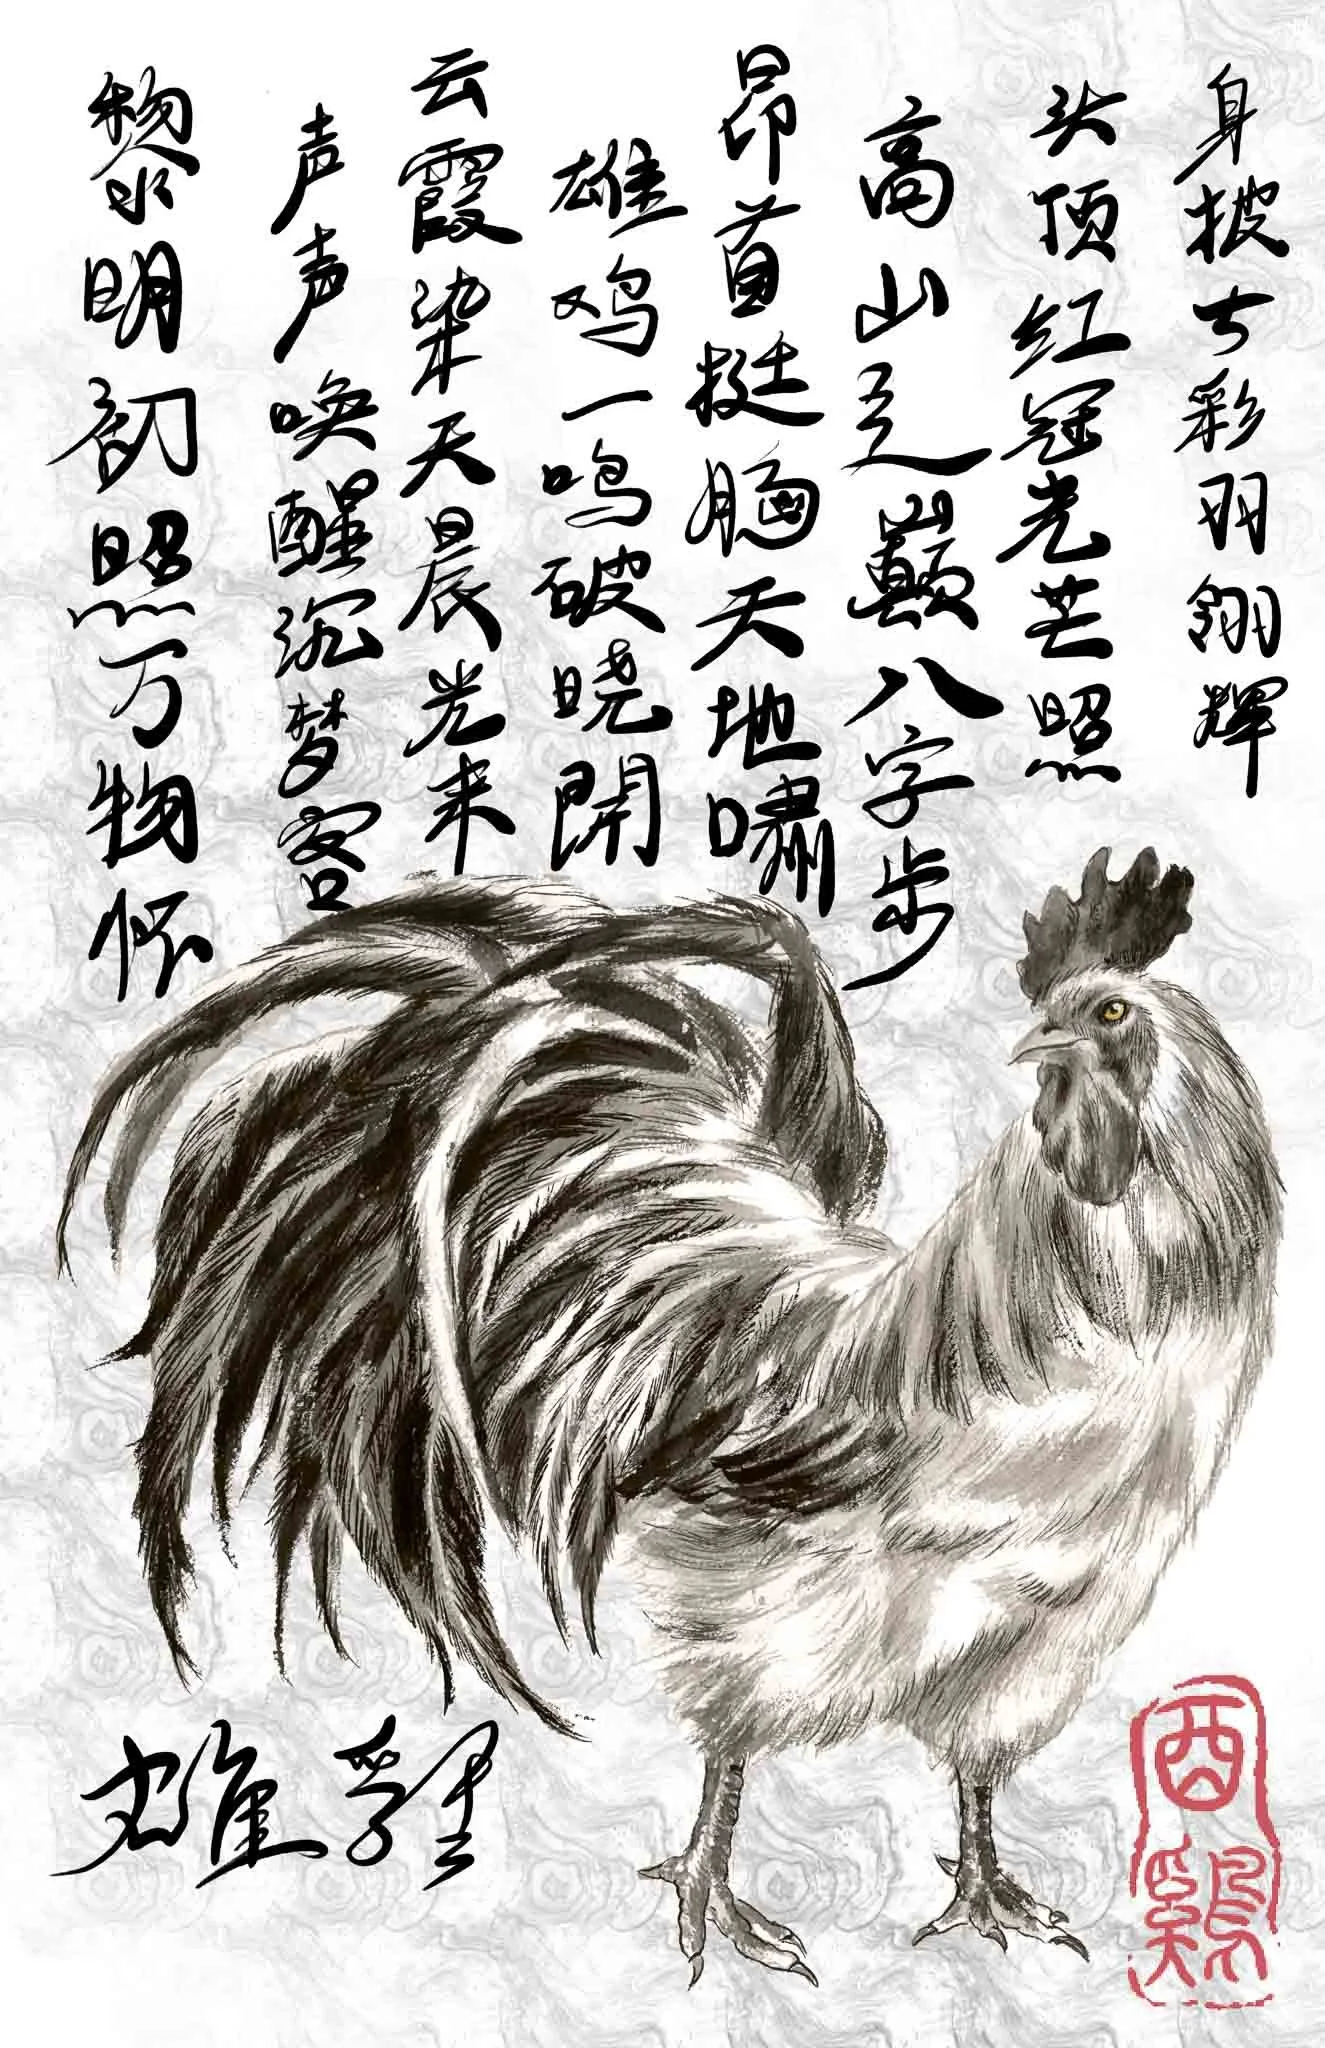 身披七彩羽翎辉
头顶红冠光芒照
高山之巅八字步
昂首挺胸天地啸
雄鸡一鸣破晓開
云霞染天晨光来
声声唤醒沉梦客
黎明初照万物怀
雄雞
酉鷄